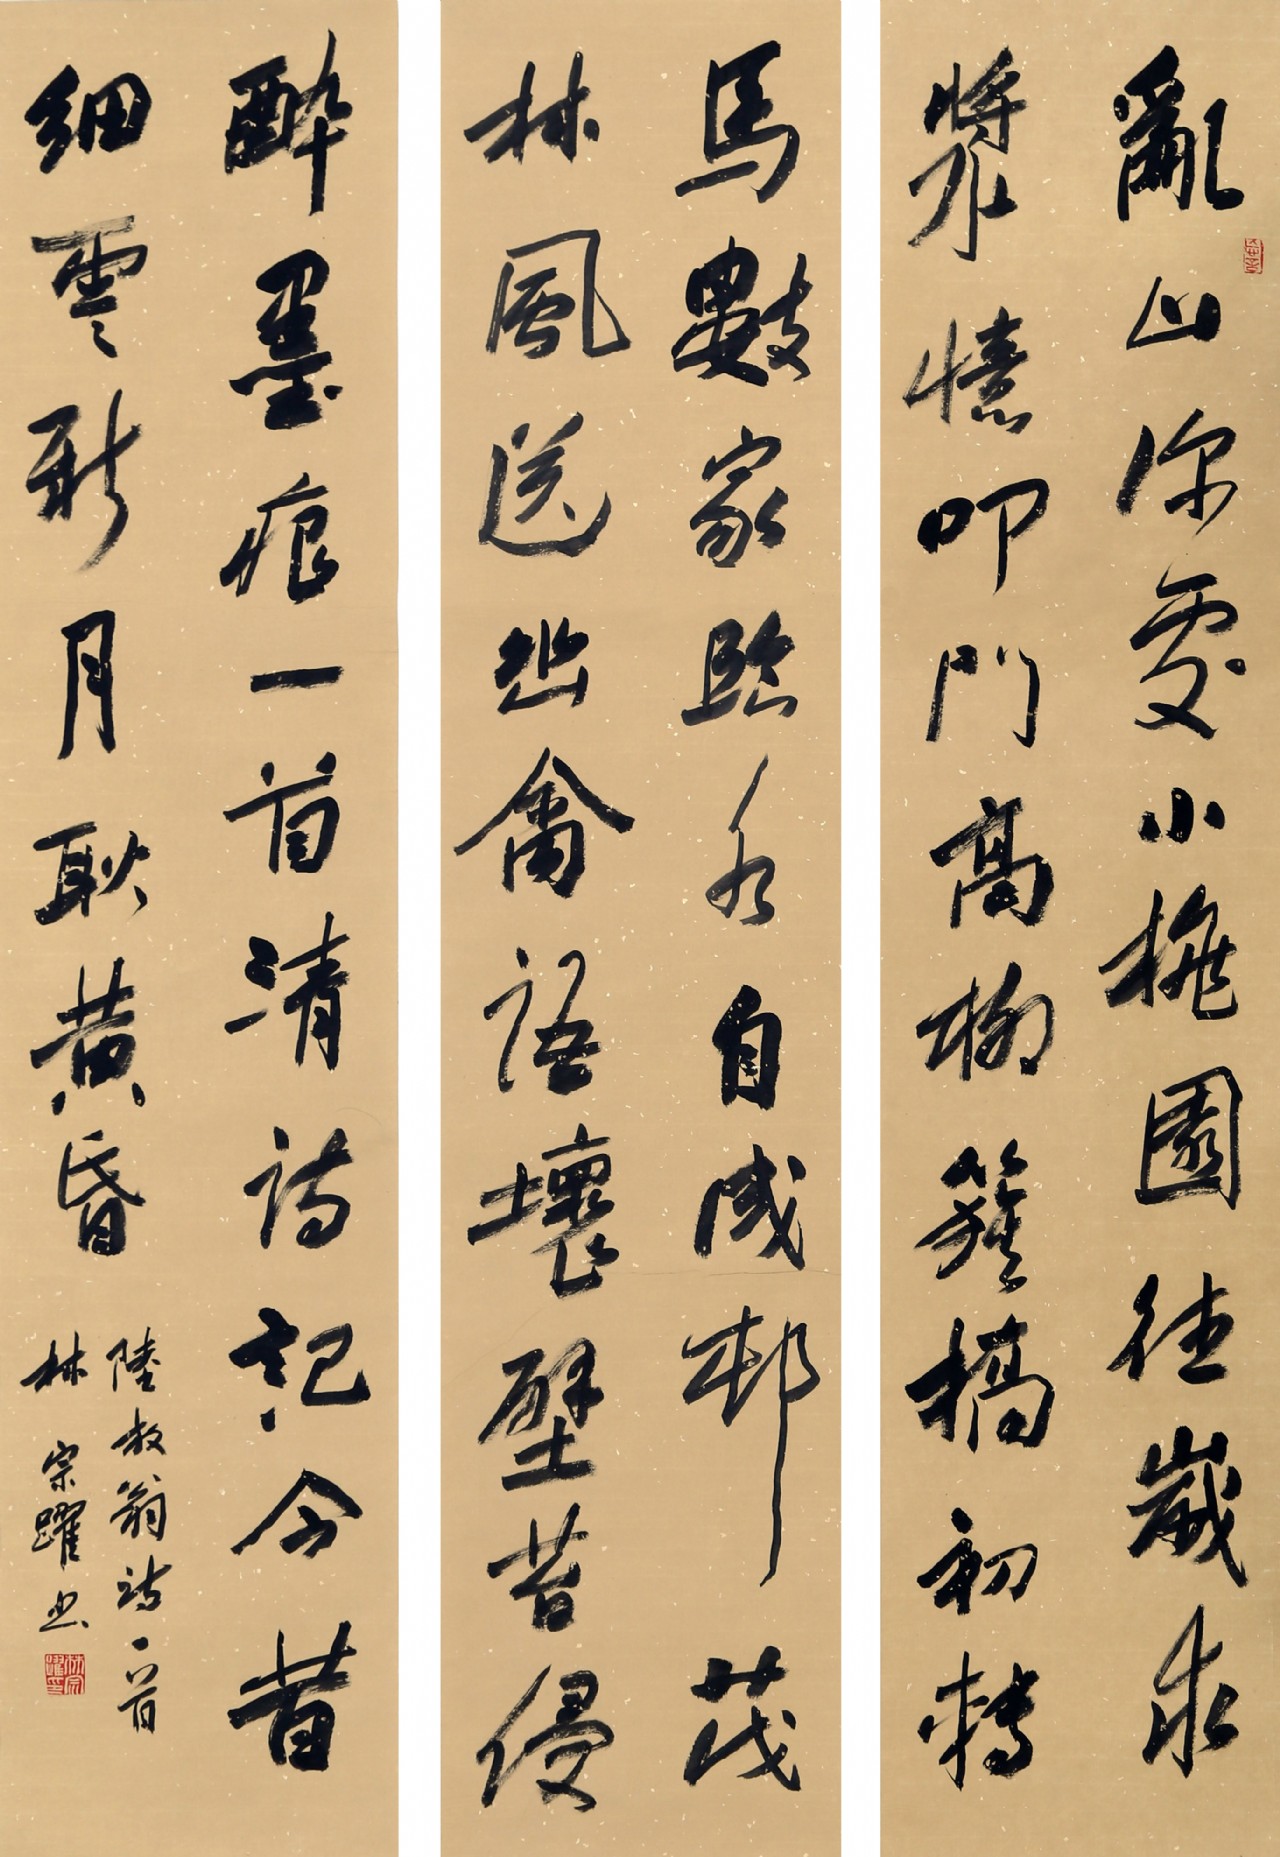 亂山深處小桃園往歲求
漿憶叩門高柳簇橋初轉
馬數家臨水自成邨茂
林風送幽禽語壞壁苔侵
醉墨痕一首清詩記今昔
細雲新月耿黃昏
陸放翁詩一首
林宗躍書